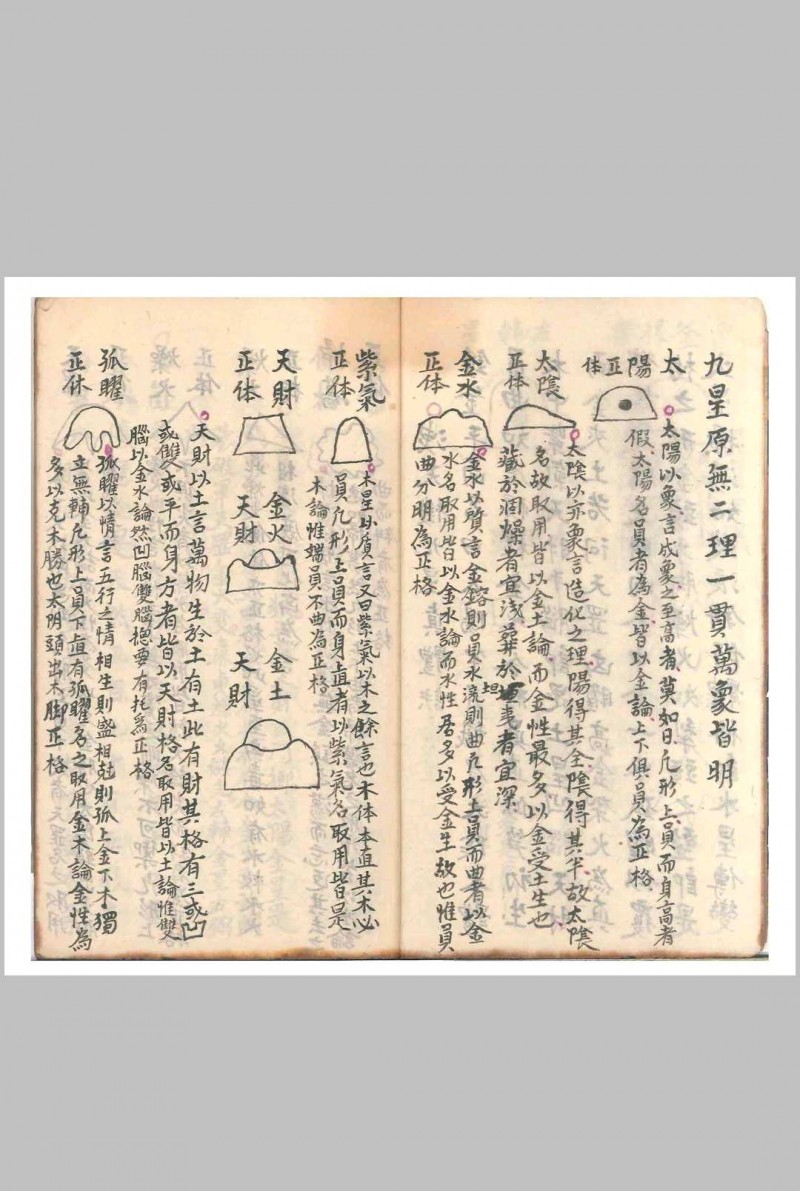 九星原無二理一貫萬象皆明
太陽
正体
太陽以象言成象之至高者莫如日凢形上員而身高者
假太陽名員者為金皆以金論上下俱員為正格
太陰
正体
太陰以亦象言造化之理陽得其全陰得其半故太陰
名故取用皆以金土論而金性最多以金受土生也
藏於涸燥者宜浅葬於坦夷者宜深
金水
正体
金水以質言金鎔則員水流則曲凢形上員而曲者以金
水名取用皆以金水論而水性居多以受金生故也惟員
曲分明為正格
紫氣
正体
木星以质言又曰紫氣以木之餘言也木体本直其木必
員凢形上員而身直者以紫氣名取用皆是
木論惟端員不曲為正格
天財
正体
金火
天財
金土
天財
天財以土言萬物生於土有土此有財其格有三或凹
或雙或平而身方者皆以天財格名取用皆以土論惟雙
腦以金水論然凹腦雙腦摠要有托為正格
孤曜
正体
孤曜以情言五行之情相生則盛相尅則孤上金下木獨
立無輔凢形上員下直有孤曜名之取用金木論金性為
多以克木勝也太阴頭出木脚正格